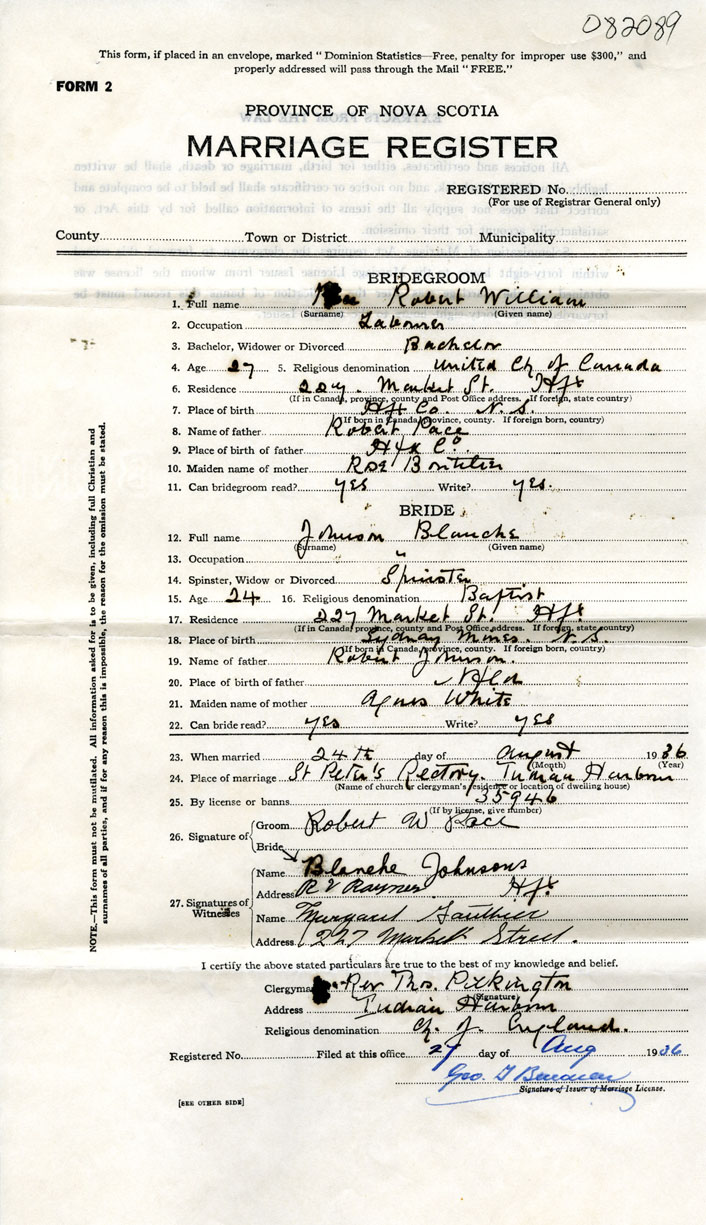 082089
This form, if placed in an envelope, marked "Dominion Statistics—Free, penalty for improper use $300," and
properly addressed will pass through the Mail "FREE."
FORM 2
PROVINCE OF NOVA SCOTIA
MARRIAGE REGISTER
REGISTERED No.
(For use of Registrar General only)
County Town or District Municipality
BRIDEGROOM
1. Full name Robert William
(Surname) (Given name)
2. Occupation Labourer
3. Bachelor, Widower or Divorced Bachelor
4. Age 27 5. Religious denomination United Ch of Canada
6. Residence 227 Market St. Hfx
(If in Canada, province, county and Post Office address. If foreign, state country)
7. Place of birth Hfx Co. N.S.
(If born in Canada, province, county. If foreign born, country)
8. Name of father Robert Pace
9. Place of birth of father Hfx Co.
10. Maiden name of mother Rose Boutilier
11. Can bridegroom read? yes Write? yes.
BRIDE
12. Full name Johnson Blanche
(Surname) (Given name)
13. Occupation "
14. Spinster, Widow or Divorced Spinster
15. Age 24 16. Religious denomination Baptist
17. Residence 227 Market St. Hfx
(If in Canada, province, county and Post Office address. If foreign, state country)
18. Place of birth Sydney Mines. N.S.
(If born in Canada, province, county. If foreign born, country)
19. Name of father Robert Johnson.
20. Place of birth of father Nfld
21. Maiden name of mother Agnes White
22. Can bride read? yes Write? yes
23. When married 24th day of August 1936
(Month) (Year)
24. Place of marriage St Peter's Rectory. Indian Harbour
(Name of church or clergyman's residence or location of dwelling house)
25. By license or banns 35946
(If by license, give number)
26. Signature of Groom Robert W Pace
Bride
27. Signatures of Witnesses
Name Blanche Johnson
Address R V Rayner Hfx
Name Margaret Gauthier
Address 227 Market Street.
I certify the above stated particulars are true to the best of my knowledge and belief.
Clergyman Rev Thos. Pickington
(Signature)
Address Indian Harbour
Religious denomination Ch. of England.
Registered No. Filed at this office 27 day of Aug 1936
Geo. G
Signature of Issuer of Marriage License.
[SEE OTHER SIDE]
NOTE.—This form must not be mutilated. All information asked for is to be given, including full Christian and
surnames of all parties, and if for any reason this is impossible, the reason for the omission must be stated.